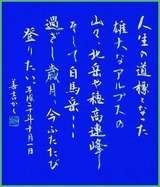 人生の道標となった
雄大なアルプスの
山々、北岳や穂高連峰
そして白馬岳…
過ぎし歳月、今ふたたび
登りたい。平成二十年十月一日